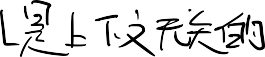 L是上下文无关的